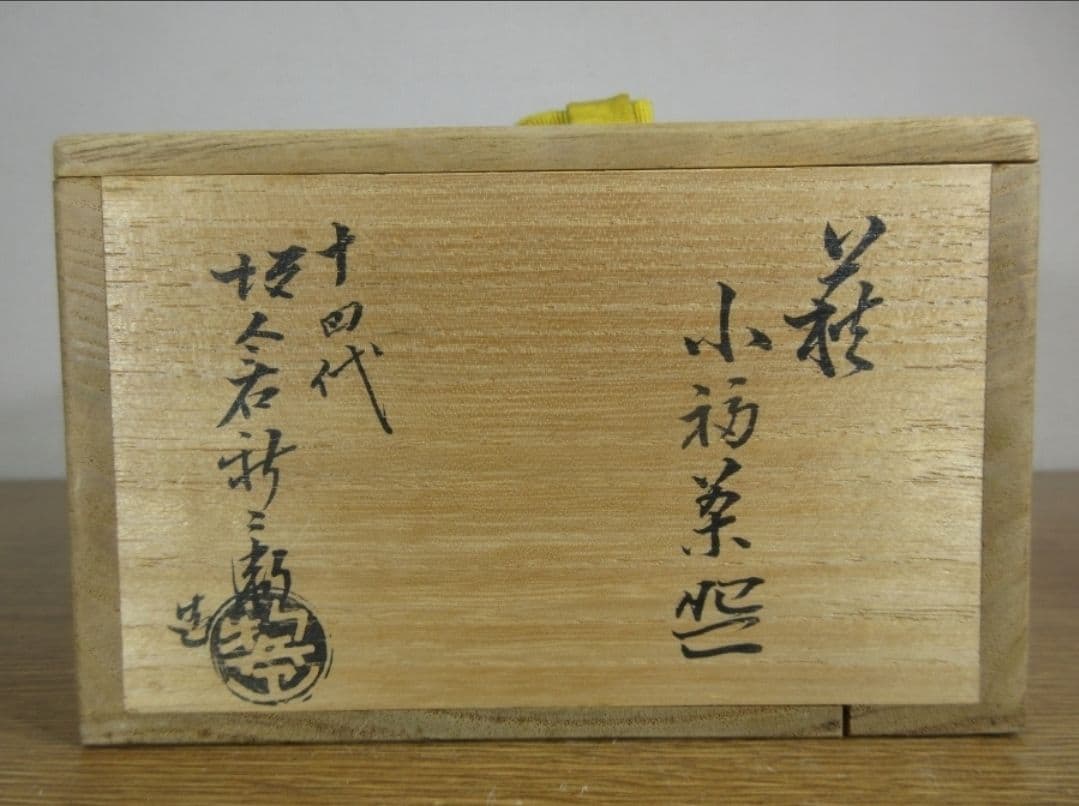 萩
小福茶盌
十四代
坂倉新兵衛
造